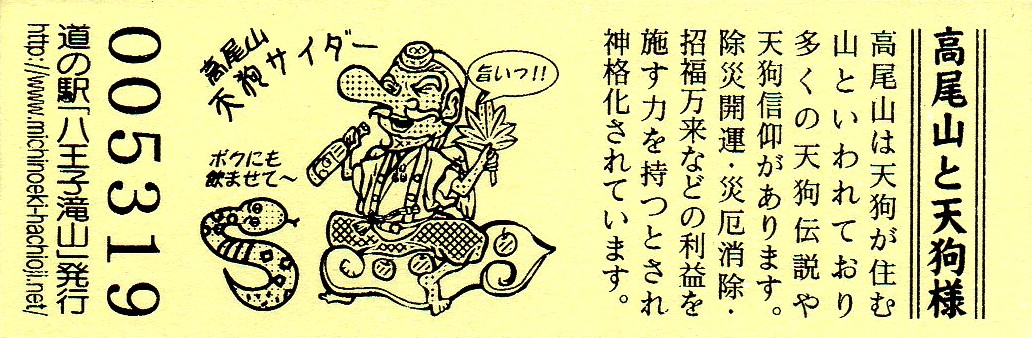 高尾山と天狗様
高尾山は天狗が住む
山といわれており
多くの天狗伝説や
天狗信仰があります。
除災開運・災厄消除・
招福万来などの利益を
施す力を持つとされ
神格化されています。
旨いっ!!
高尾山
天狗サイダー
ボクにも
飲ませて～
005319
道の駅「八王子滝山」発行
http://www.michinoeki-hachioji.net/